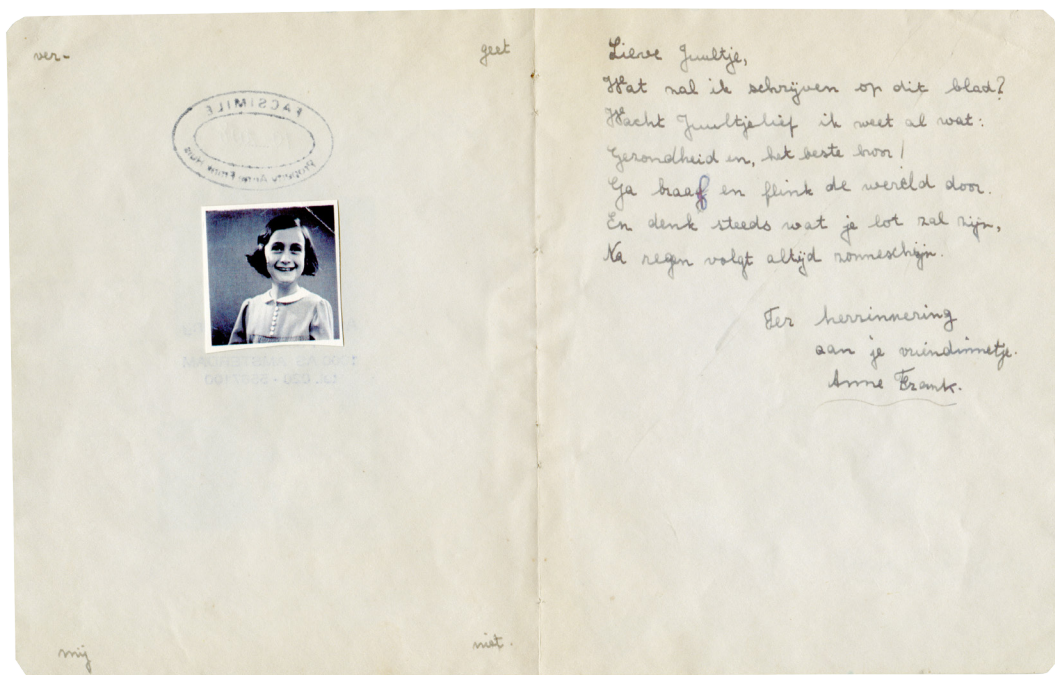 ver-
geet
FACSIMILE
Property Anne Frank Huis
AMSTERDAM
Tel. 020 - 5567100
mij
niet.
Lieve Juultje,
Wat zal ik schrijven op dit blad?
Wacht Juultjelief ik weet al wat:
Gezondheid en, het beste hoor!
Ga braaf en flink de wereld door.
En denk steeds wat je lot zal zijn,
Na regen volgt altijd zonneschijn.
Ter herrinnering
aan je vriendinnetje.
Anne Frank.